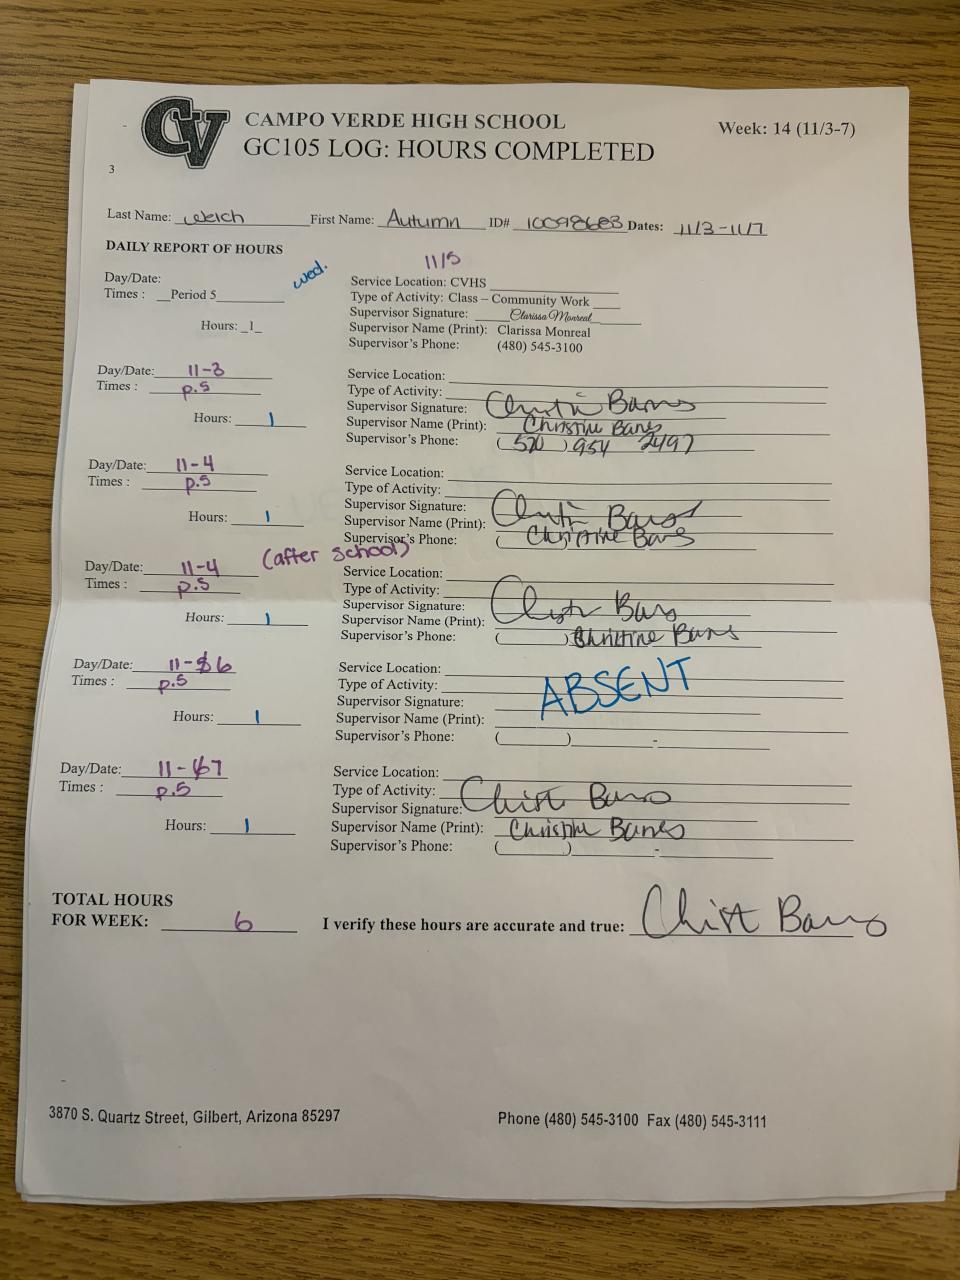 CV
CAMPO VERDE HIGH SCHOOL
Week: 14 (11/3-7)
GC105 LOG: HOURS COMPLETED
3
Last Name: Welch First Name: Autumn ID# 10098683 Dates: 11/3-11/7
DAILY REPORT OF HOURS
wed.
11/5
Day/Date:
Service Location: CVHS
Times : Period 5
Type of Activity: Class – Community Work
Supervisor Signature: Clarissa Monreal
Hours: 1
Supervisor Name (Print): Clarissa Monreal
Supervisor's Phone: (480) 545-3100
Day/Date: 11-3
Service Location:
Times : p.5
Type of Activity:
Supervisor Signature:
Hours: 1
Supervisor Name (Print): Christine
Supervisor's Phone: (520) 954 2497
Day/Date: 11-4
Service Location:
Times : p.5
Type of Activity:
Supervisor Signature:
Hours: 1
Supervisor Name (Print):
Supervisor's Phone: ( Christine
Day/Date: 11-4 (after school)
Service Location:
Times : p.5
Type of Activity:
Supervisor Signature:
Hours: 1
Supervisor Name (Print):
Supervisor's Phone: ( ) Christine
Day/Date: 11-6
Service Location:
Times : p.5
Type of Activity: ABSENT
Supervisor Signature:
Hours: 1
Supervisor Name (Print):
Supervisor's Phone: ( ) -
Day/Date: 11-7
Service Location:
Times : p.5
Type of Activity:
Supervisor Signature:
Hours: 1
Supervisor Name (Print): Christine
Supervisor's Phone: ( ) -
TOTAL HOURS
FOR WEEK: 6
I verify these hours are accurate and true:
3870 S. Quartz Street, Gilbert, Arizona 85297
Phone (480) 545-3100 Fax (480) 545-3111